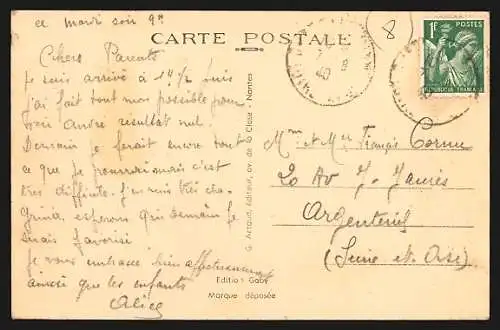 ce mardi soir 9h
CARTE POSTALE
8
1F POSTES
RÉPUBLIQUE FRANÇAISE
40
Chers Parents
Je suis arrivé à 14 1/2 puis
j'ai fait tout mon possible pour
voir André resultat nul.
Demain je ferait encore tout
ce que je pourrai mais c'est
très difficile. j'en suis très cha-
grin, esperons que demain je
serais favorisé
Je vous embrasse bien affectueusement
ainsi que les enfants
Alice
G. Artaud, éditeur, av. de la Close - Nantes
Edition Gaby
Marque déposée
Mme et Mr François Cornu
20 Av J. Jaurès
Argenteuil
(Seine et Oise)